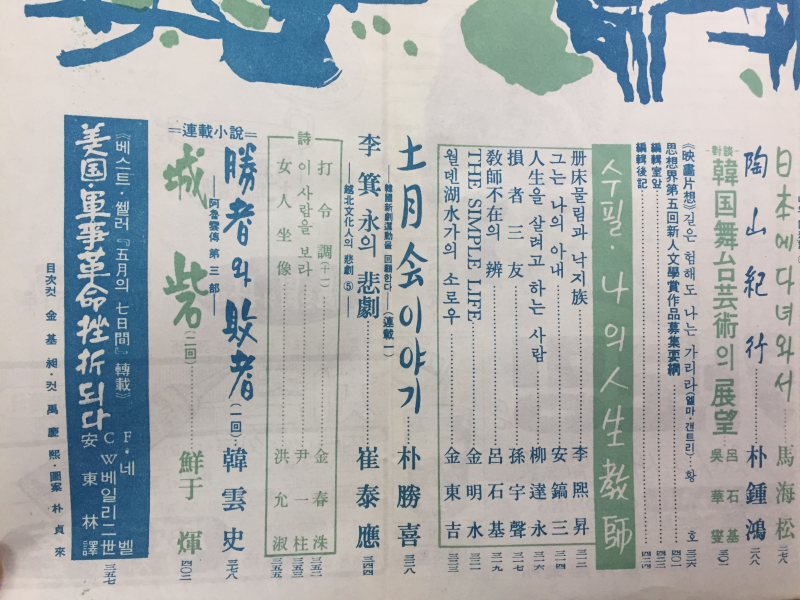 日本에다녀와서 馬海松 二七八
陶山紀行 朴鍾鴻 二八八
對談 韓国舞台芸術의 展望 呂石基 吳華燮 三〇八
《映畵片想》 길은 험해도 나는 가리라(엘마·갠트리) 황호 三二六
思想界第五回新人文學賞作品募集要綱 四〇一
編輯室앞 四二三
編輯後記 四二四
수필·나의人生教師
册床물림과 낙지族 李熙昇 三一二
그는 나의 아내 安鎬三 三一四
人生을 살려고 하는 사람 柳達永 三一六
損者三友 孫宇聲 三一七
敎師不在의 辨 呂石基 三一九
THE SIMPLE LIFE 金明水 三二一
월덴湖水가의 소로우 金東吉 三二三
土月会이야기 朴勝喜 三二八
——韓國新劇運動을 回顧한다——(連載 一)
李箕永의 悲劇 崔泰應 三四四
——越北文化人의 悲劇 ⑤——
詩
打令調(十一) 金春洙 三五二
이 사람을 보라 尹一柱 三五三
女人坐像 洪允淑 三五五
=連載小說=
勝者와 敗者(一回) 韓雲史 三七八
——阿魯雲傳 第三部——
城砦(二回) 鮮于煇 四〇二
《베스트·쎌러『五月의 七日間』轉載》
美国·軍事革命挫折되다 F·네벨 C·W베일리二世 安東林譯 三五七
目次컷 金基昶·컷 禹慶熙·圖案 朴貞來